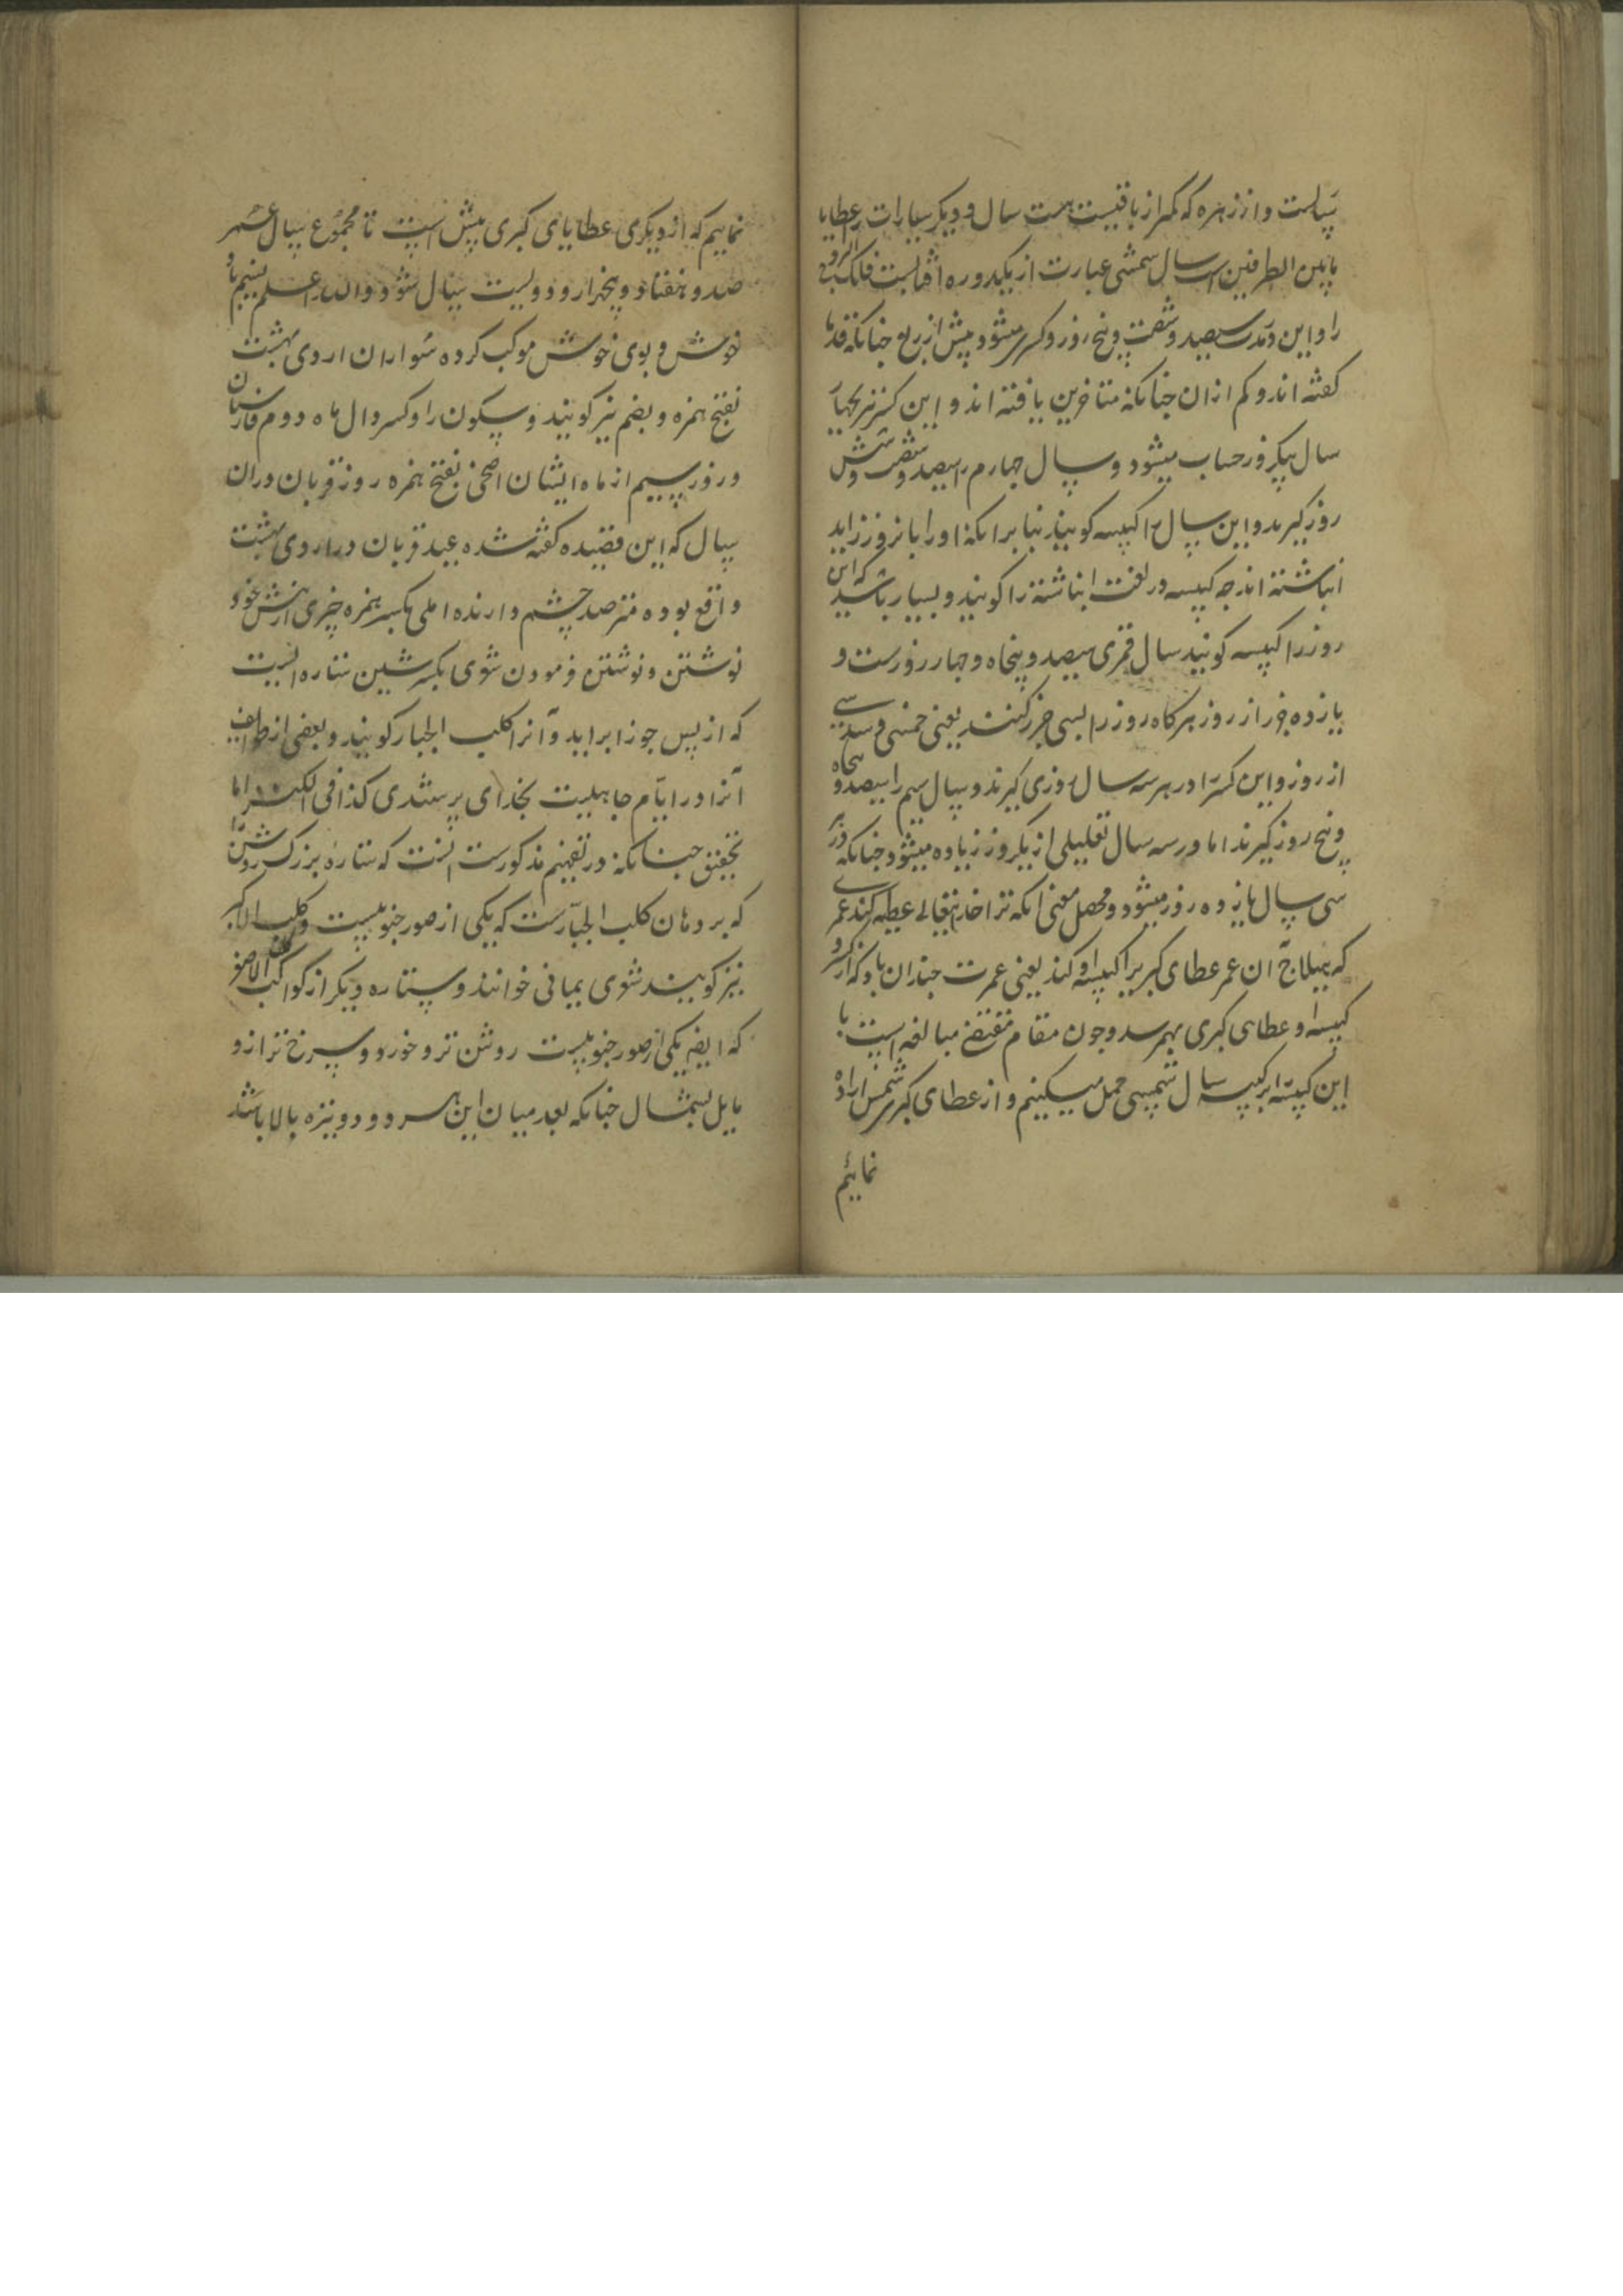 سالست و از زهره که کمتر از باقیست هشت سال و دیگر سیارات را عطایا
مابین الطرفین است سال شمسی عبارت از یکدوره آفتابست فلک البروج
را و این در مدت سیصد و شصت و پنج روز و کسری میشود پیش از ربع چنانکه قدما
گفته اند و کم از آن چنانکه متاخرین یافته اند و این کسر بچهار
سال یکروز حساب میشود و سال چهارم را سیصد و شصت و شش
روز گیرند و این سال را کبیسه گویند بنا برانکه او را بانروز زاید
انباشته اند چه کبیسه در لغت انباشته را گویند و بسیار باشد که این
روز را کبیسه گویند سال قمری سیصد و پنجاه و چهار روزست و
یازده جزء از روز هرگاه روز را بسی جزء کنند یعنی خمسی و سدسی
از روز و این کسر را در هر سه سال روزی گیرند و سال سیم را سیصد و پنجاه
و پنج روز گیرند اما در سه سال تقلیلی از یکروز زیاده میشود چنانکه در هر
سی سال یازده روز میشود و محصل معنی آنکه ترا خدایتعالی عطیه کند عمری
که هیلاج آن عمر عطای کبری را کبیسه او کند یعنی عمرت چندان باد که از
کبیسه او عطای کبری بهم رسد و چون مقام مقتضی مبالغه است ما
این کبیسه را بر کبیسه سال شمسی حمل میکنیم و از عطای کبری شمس اراده
نمائیم
نماییم که از دیگری عطایای کبری بیش است تا مجموع سال عمر
صد و هفتاد و پنجهزار و دویست سال شود والله اعلم نسیم باد
خوش و بوی خوش موکب گروه سواران اردی بهشت
بفتح همزه و بضم نیز گویند و سکون را و کسر دال ماه دوم فارسیان
و روز سیم از ماه ایشان اضحی بفتح همزه روز قربان و در آن
سال که این قصیده گفته شده عید قربان در اردی بهشت
واقع بوده مترصد چشم دارنده املی بکسر همزه چیزی از پیش خود
نوشتن و نوشتن فرمودن شعری بکسر شین ستاره ایست
که از پس جوزا براید و آنرا کلب الجبار گویند و بعضی از طوایف
آنرا در ایام جاهلیت بخدای پرستیدی کذا فی الکنز اما
تحقیق چنانکه در تفهیم مذکورست آنست که ستاره بزرگ روشن را
که بر دهان کلب الجبارست که یکی از صور جنوبیست و کلب الاکبر
نیز گویند شعری یمانی خوانند و ستاره دیگر از کواکب کلب الاصغر
که ایضا یکی از صور جنوبیست روشن تر و خورد و سرخ تر از و
مایل بشمال چنانکه بعد میان این هر دو دو نیزه بالا باشد